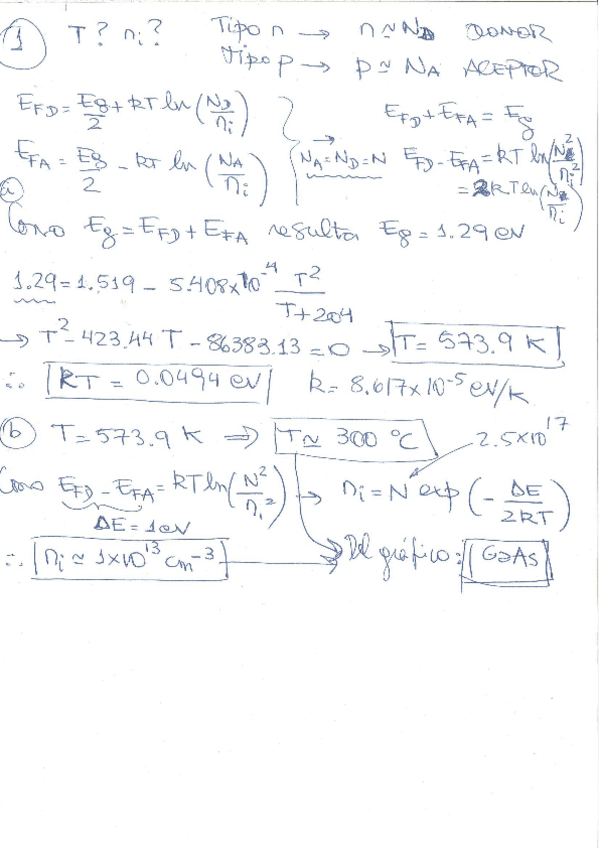 1 T? ni? Tipo n → n ≃ ND DONOR
Tipo p → p ≃ NA ACEPTOR
EFD = Eg/2 + kT ln (ND/ni) EFD + EFA = Eg
EFA = Eg/2 - kT ln (NA/ni) NA = ND = N → EFD - EFA = kT ln (N²/ni²)
= 2kT ln (N/ni)
a
Como Eg = EFD + EFA resulta Eg = 1.29 eV
1.29 = 1.519 - 5.408×10⁻⁴ T²/T+204
→ T² - 423.44 T - 86383.13 = 0 → T = 573.9 K
∴ kT = 0.0494 eV k = 8.617×10⁻⁵ eV/K
b T = 573.9 K ⇒ T ≃ 300 °C 2.5×10¹⁷
Como EFD - EFA = kT ln (N²/ni²) → ni = N exp (- ΔE/2kT)
ΔE = 1 eV
∴ ni ≃ 1×10¹³ cm⁻³ → Del gráfico: GaAs